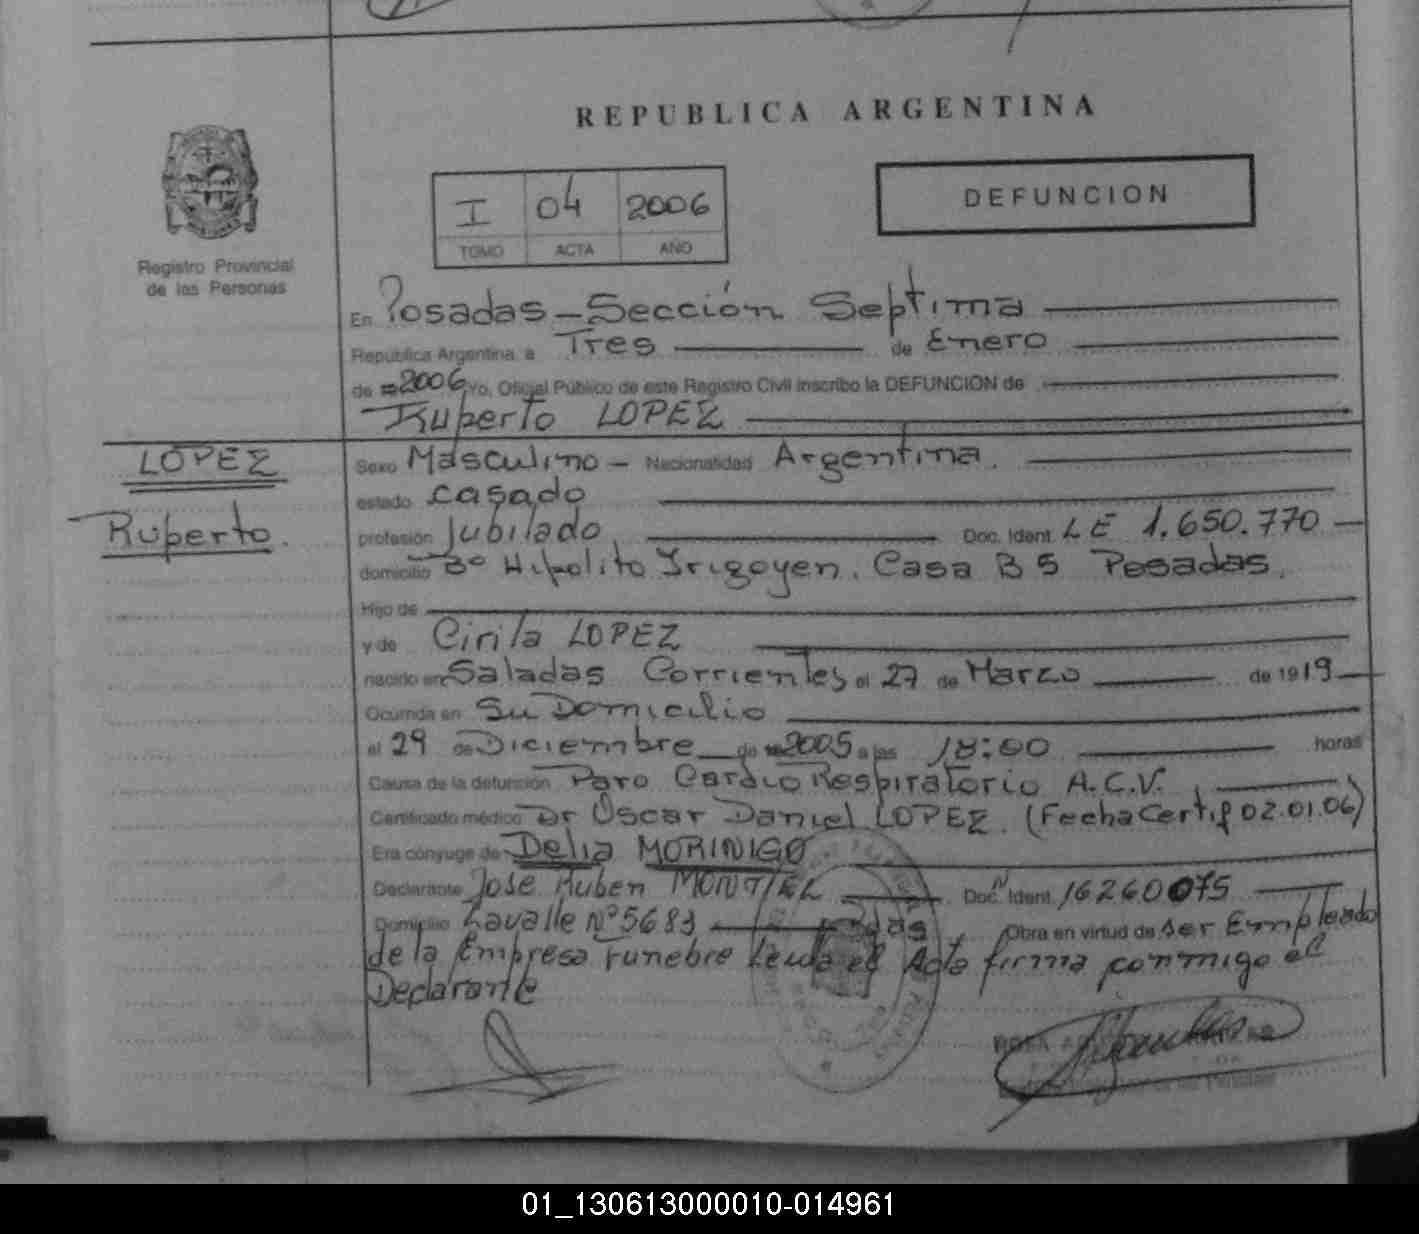 REPUBLICA ARGENTINA
I 04 2006
TOMO ACTA AÑO
DEFUNCION
Registro Provincial
de las Personas
En Posadas - Sección Septima
República Argentina a Tres de Enero
de 2006 Yo, Oficial Público de este Registro Civil inscribo la DEFUNCION de
Ruperto LOPEZ
LOPEZ
Ruperto.
Sexo Masculino - Nacionalidad Argentina.
estado casado
profesión Jubilado Doc. Ident. LE 1.650.770
domicilio Bº Hipolito Yrigoyen. Casa B 5 Posadas.
Hijo de
y de Cirila LOPEZ
nacido en Saladas Corrientes el 27 de Marzo de 1919
Ocurrida en Su Domicilio
el 29 de Diciembre de 2005 a las 18:00 horas
Causa de la defunción Paro Cardio Respiratorio A.C.V.
Certificado médico Dr Oscar Daniel LOPEZ. (Fecha Certif 02.01.06)
Era cónyuge de Delia MORINIGO
Declarante Jose Ruben MONTIEL Doc. Ident. 16260075
Domicilio Lavalle Nº 5683 Obra en virtud de ser Empleado
de la Empresa Funebre Leida el Acta firma conmigo el
Declarante
01_130613000010-014961